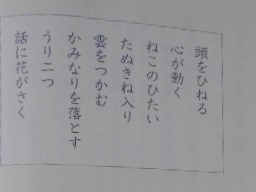 頭をひねる
心が動く
ねこのひたい
たぬきね入り
雲をつかむ
かみなりを落とす
うり二つ
話に花がさく